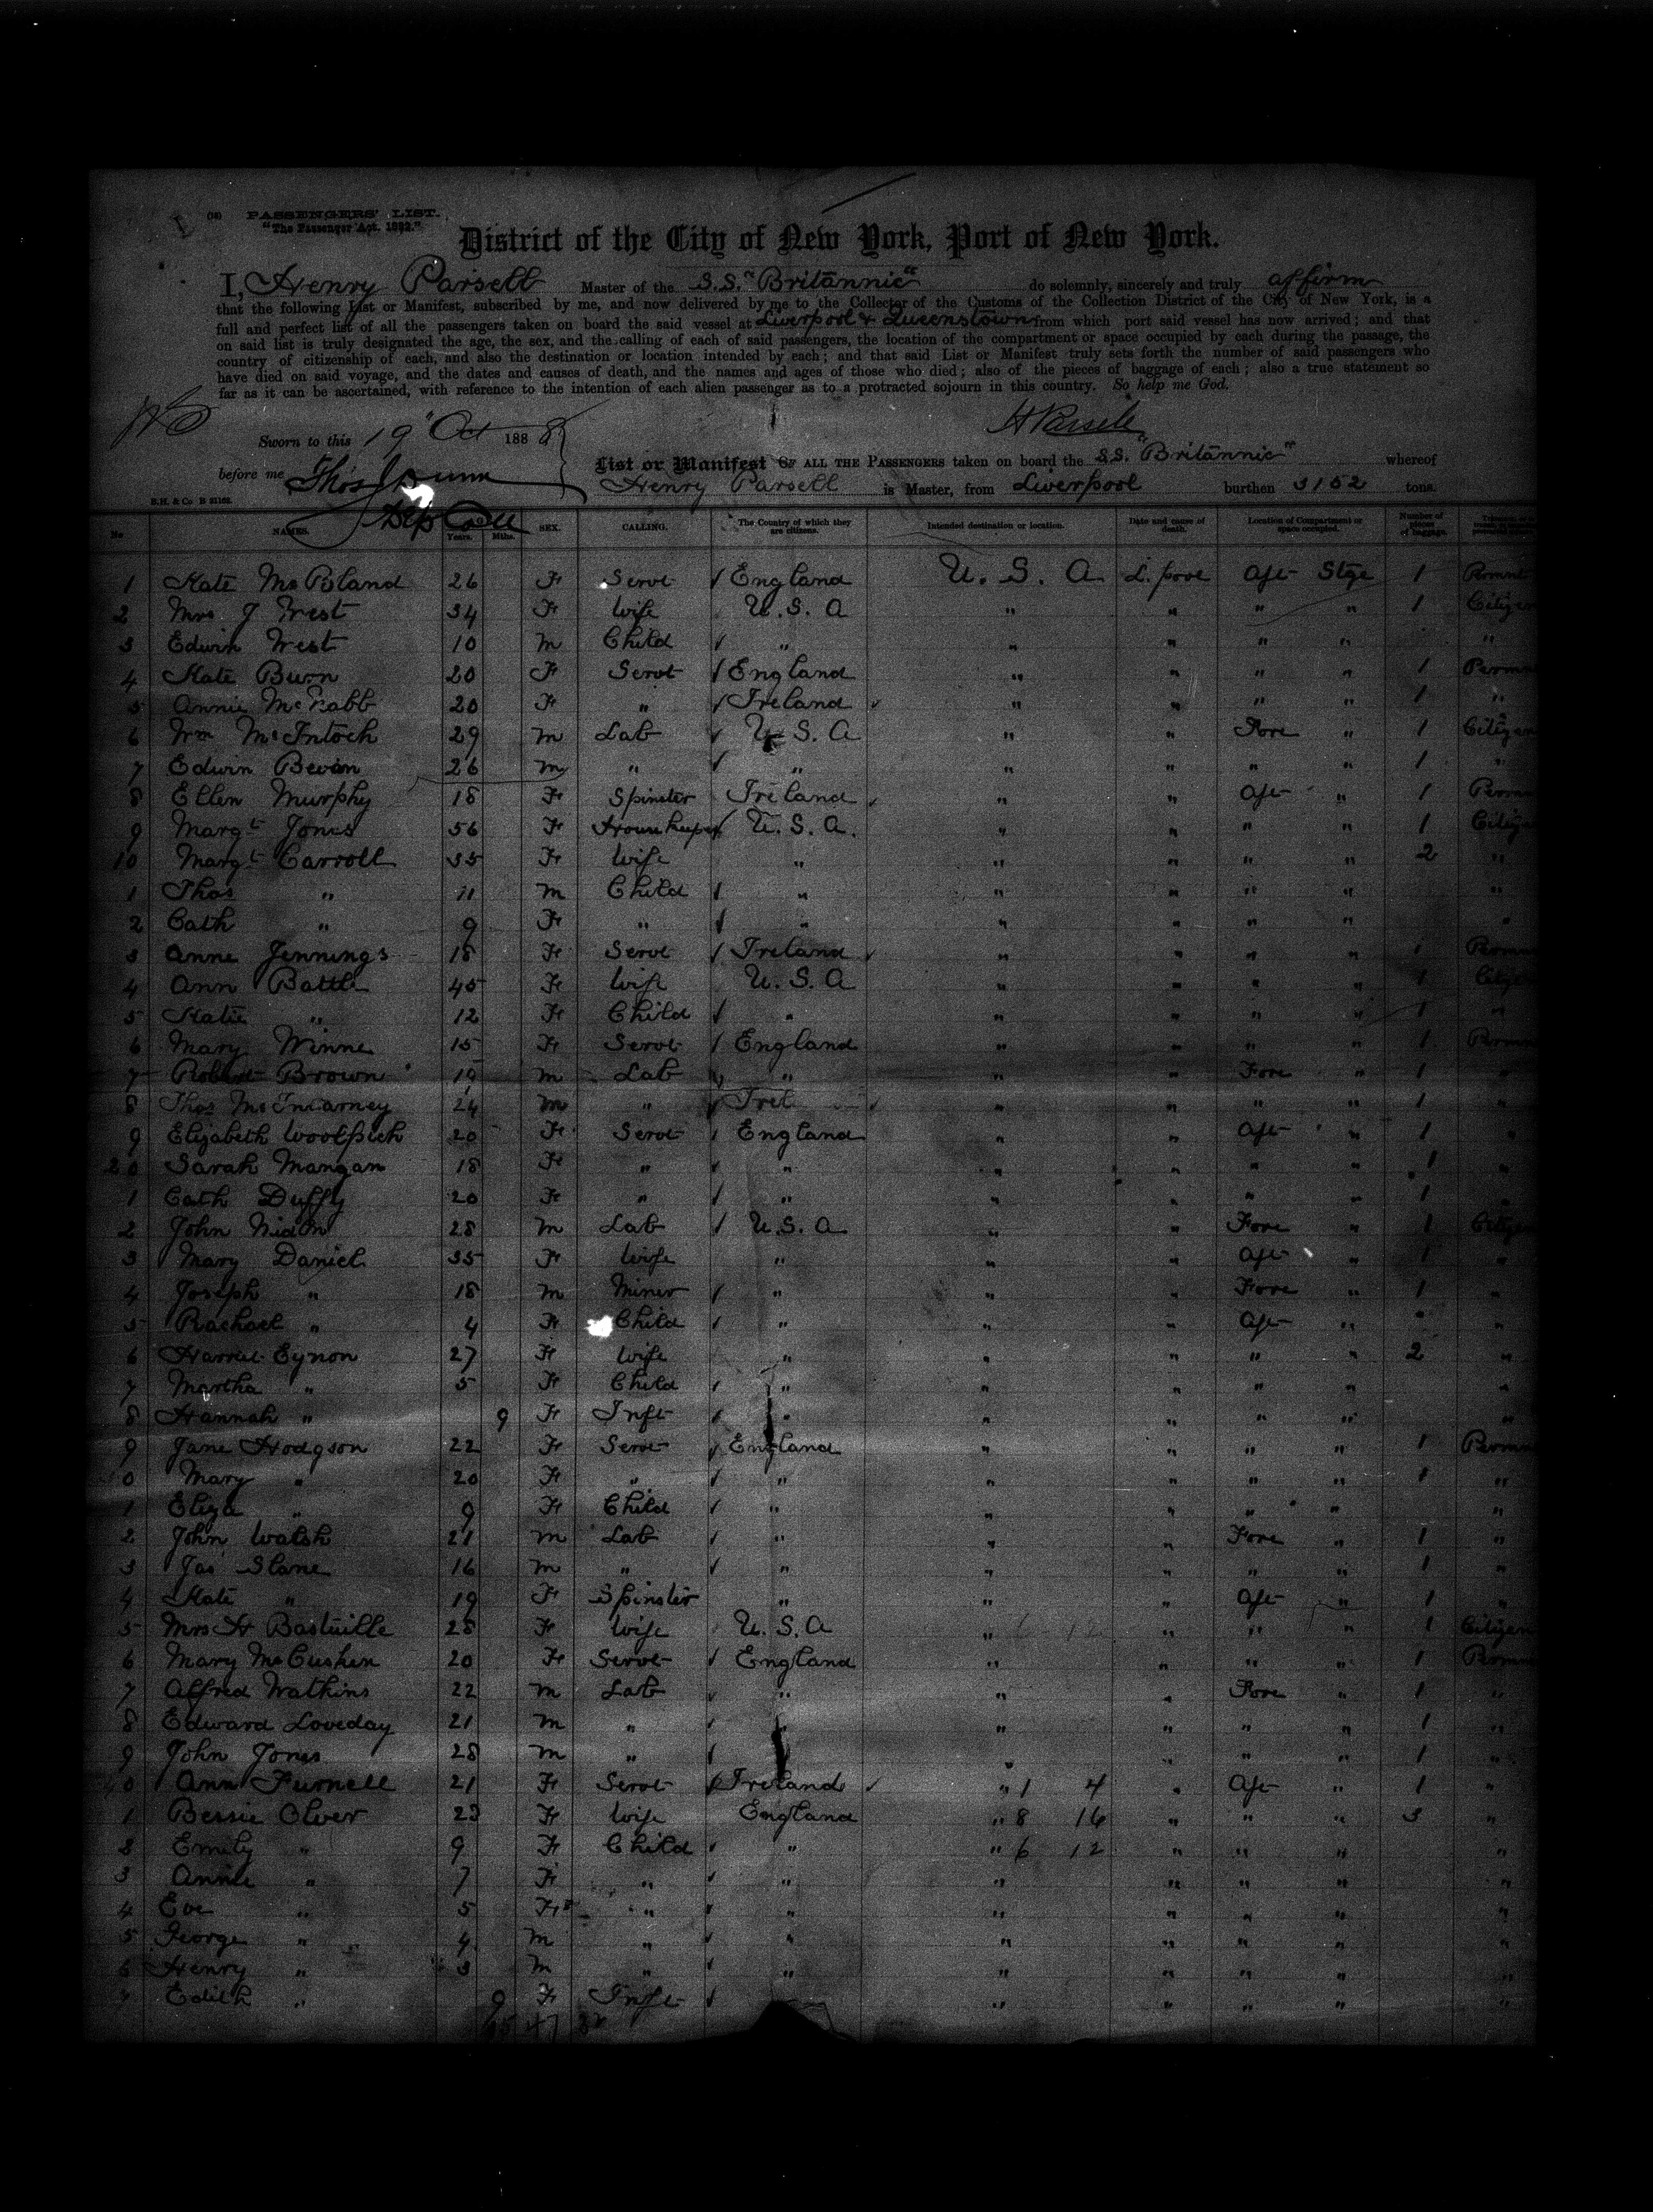 (16) PASSENGERS' LIST.
"The Passenger Act. 1882."
District of the City of New York, Port of New York.
I, Henry Parsell Master of the S.S. "Britannic" do solemnly, sincerely and truly affirm
that the following List or Manifest, subscribed by me, and now delivered by me to the Collector of the Customs of the Collection District of the City of New York, is a
full and perfect list of all the passengers taken on board the said vessel at Liverpool & Queenstown from which port said vessel has now arrived; and that
on said list is truly designated the age, the sex, and the calling of each of said passengers, the location of the compartment or space occupied by each during the passage, the
country of citizenship of each, and also the destination or location intended by each; and that said List or Manifest truly sets forth the number of said passengers who
have died on said voyage, and the dates and causes of death, and the names and ages of those who died; also of the pieces of baggage of each; also a true statement so
far as it can be ascertained, with reference to the intention of each alien passenger as to a protracted sojourn in this country. So help me God.
H Parsell
Sworn to this 19 " Oct 1888
before me Thos J Dunn
Dep Coll
List or Manifest OF ALL THE PASSENGERS taken on board the S.S. "Britannic" whereof
Henry Parsell is Master, from Liverpool burthen 3152 tons.
B.H. & Co
No NAMES. Years. Mths. SEX. CALLING. The Country of which they are citizens. Intended destination or location. Date and cause of death. Location of Compartment or space occupied. Number of pieces of baggage.
1 Kate 26 F Servt England U.S.A L.pool Aft Stge 1 Permnt
2 Mrs J West 34 F Wife U.S.A " " " " 1 Citizen
3 Edwin West 10 m Child " " " " " "
4 Kate Burn 20 F Servt England " " " " 1 Permn
5 Annie McNabb 20 F " Ireland " " " " 1 "
6 Wm McIntoch 29 m Lab U.S.A " " Fore " 1 Citizen
7 Edwin Bevan 26 m " " " " " " 1 "
8 Ellen Murphy 18 F Spinster Ireland " " Aft " 1 Perm
9 Margt Jones 56 F Housekeeper U.S.A. " " " " 1 Citizen
10 Margt Carroll 35 F Wife " " " " " 2 "
1 Thos " 11 m Child " " " " " "
2 Cath " 9 F " " " " " " "
3 Anne Jennings 18 F Servt Ireland " " " " 1 Permn
4 Ann Battle 45 F Wife U.S.A " " " " 1 Citizen
5 Katie " 12 F Child " " " " " 1 "
6 Mary Winne 15 F Servt England " " " " 1 Permn
7 Robert Brown 19 m Lab " " " Fore " 1 "
8 Thos McInarney 24 m " Irel " " " " 1 "
9 Elizabeth 20 F Servt England " " Aft " 1 "
20 Sarah Mangan 18 F " " " " " " 1 "
1 Cath Duffy 20 F " " " " " " 1 "
2 John 28 m Lab U.S.A " " Fore " 1 Citizen
3 Mary Daniel 35 F Wife " " " Aft " 1 "
4 Joseph " 18 m Miner " " " Fore " 1 "
5 Rachael " 4 F Child " " " Aft " " "
6 Harriet Eynon 27 F Wife " " " " " 2 "
7 Martha " 5 F Child " " " " " "
8 Hannah " 9 F Inft " " " " " "
9 Jane Hodgson 22 F Servt England " " " " 1 Permn
30 Mary " 20 F " " " " " " 1 "
1 Eliza " 9 F Child " " " " " "
2 John Walsh 21 m Lab " " " Fore " 1 "
3 Jas Slane 16 m " " " " " " 1 "
4 Kate " 19 F Spinster " " " Aft " 1 "
5 Mrs H 28 F Wife U.S.A " " " " 1 Citizen
6 Mary McCushen 20 F Servt England " " " " 1 Permn
7 Alfred Watkins 22 m Lab " " " Fore " 1 "
8 Edward Loveday 21 m " " " " " " 1 "
9 John Jones 28 m " " " " " " 1 "
40 Ann Furnell 21 F Servt Ireland " 1 4 " Aft " 1 "
1 Bessie Olver 23 F Wife England " 8 16 " " " 3 "
2 Emily " 9 F Child " " 6 12 " " " "
3 Annie " 7 F " " " " " " "
4 Eve " 5 F " " " " " " "
5 George " 4 m " " " " " " "
6 Henry " 3 m " " " " " " "
7 Edith " 9 F Inft " " " " "